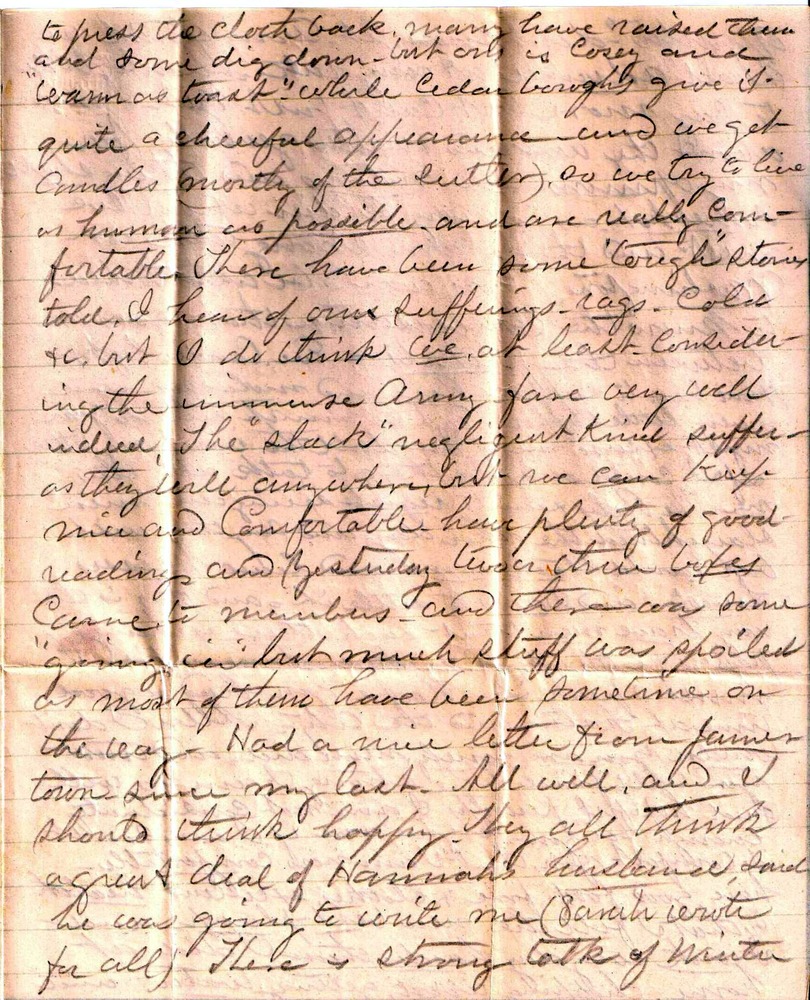 to press the cloth back, many have raised them
and some dig down - but ours is Cosey and
"warm as toast" while Cedar boughs give it
quite a cheerful appearance and we get
Candles (mostly of the sutler), so we try to live
as human as possible and are really Com-
fortable. There have been some "tough" stories
told, I hear of our sufferings - rags - Cold
&c. but I do think we, at least - Consider-
ing the immense Army fare very well
indeed, The "slack" negligent Kind suffer -
as they will anywhere, but we can Keep
nice and Comfortable - have plenty of good
reading and Yesterday two or three boxes
Came to members - and there was some
"going in" but much stuff was spoiled
as most of them have been sometime on
the way - Had a nice letter from James-
town since my last. All well, and I
should think happy. They all think
a great deal of Hannah's husband, said
he was going to write me (Sarah wrote
for all) There is strong talk of Winter